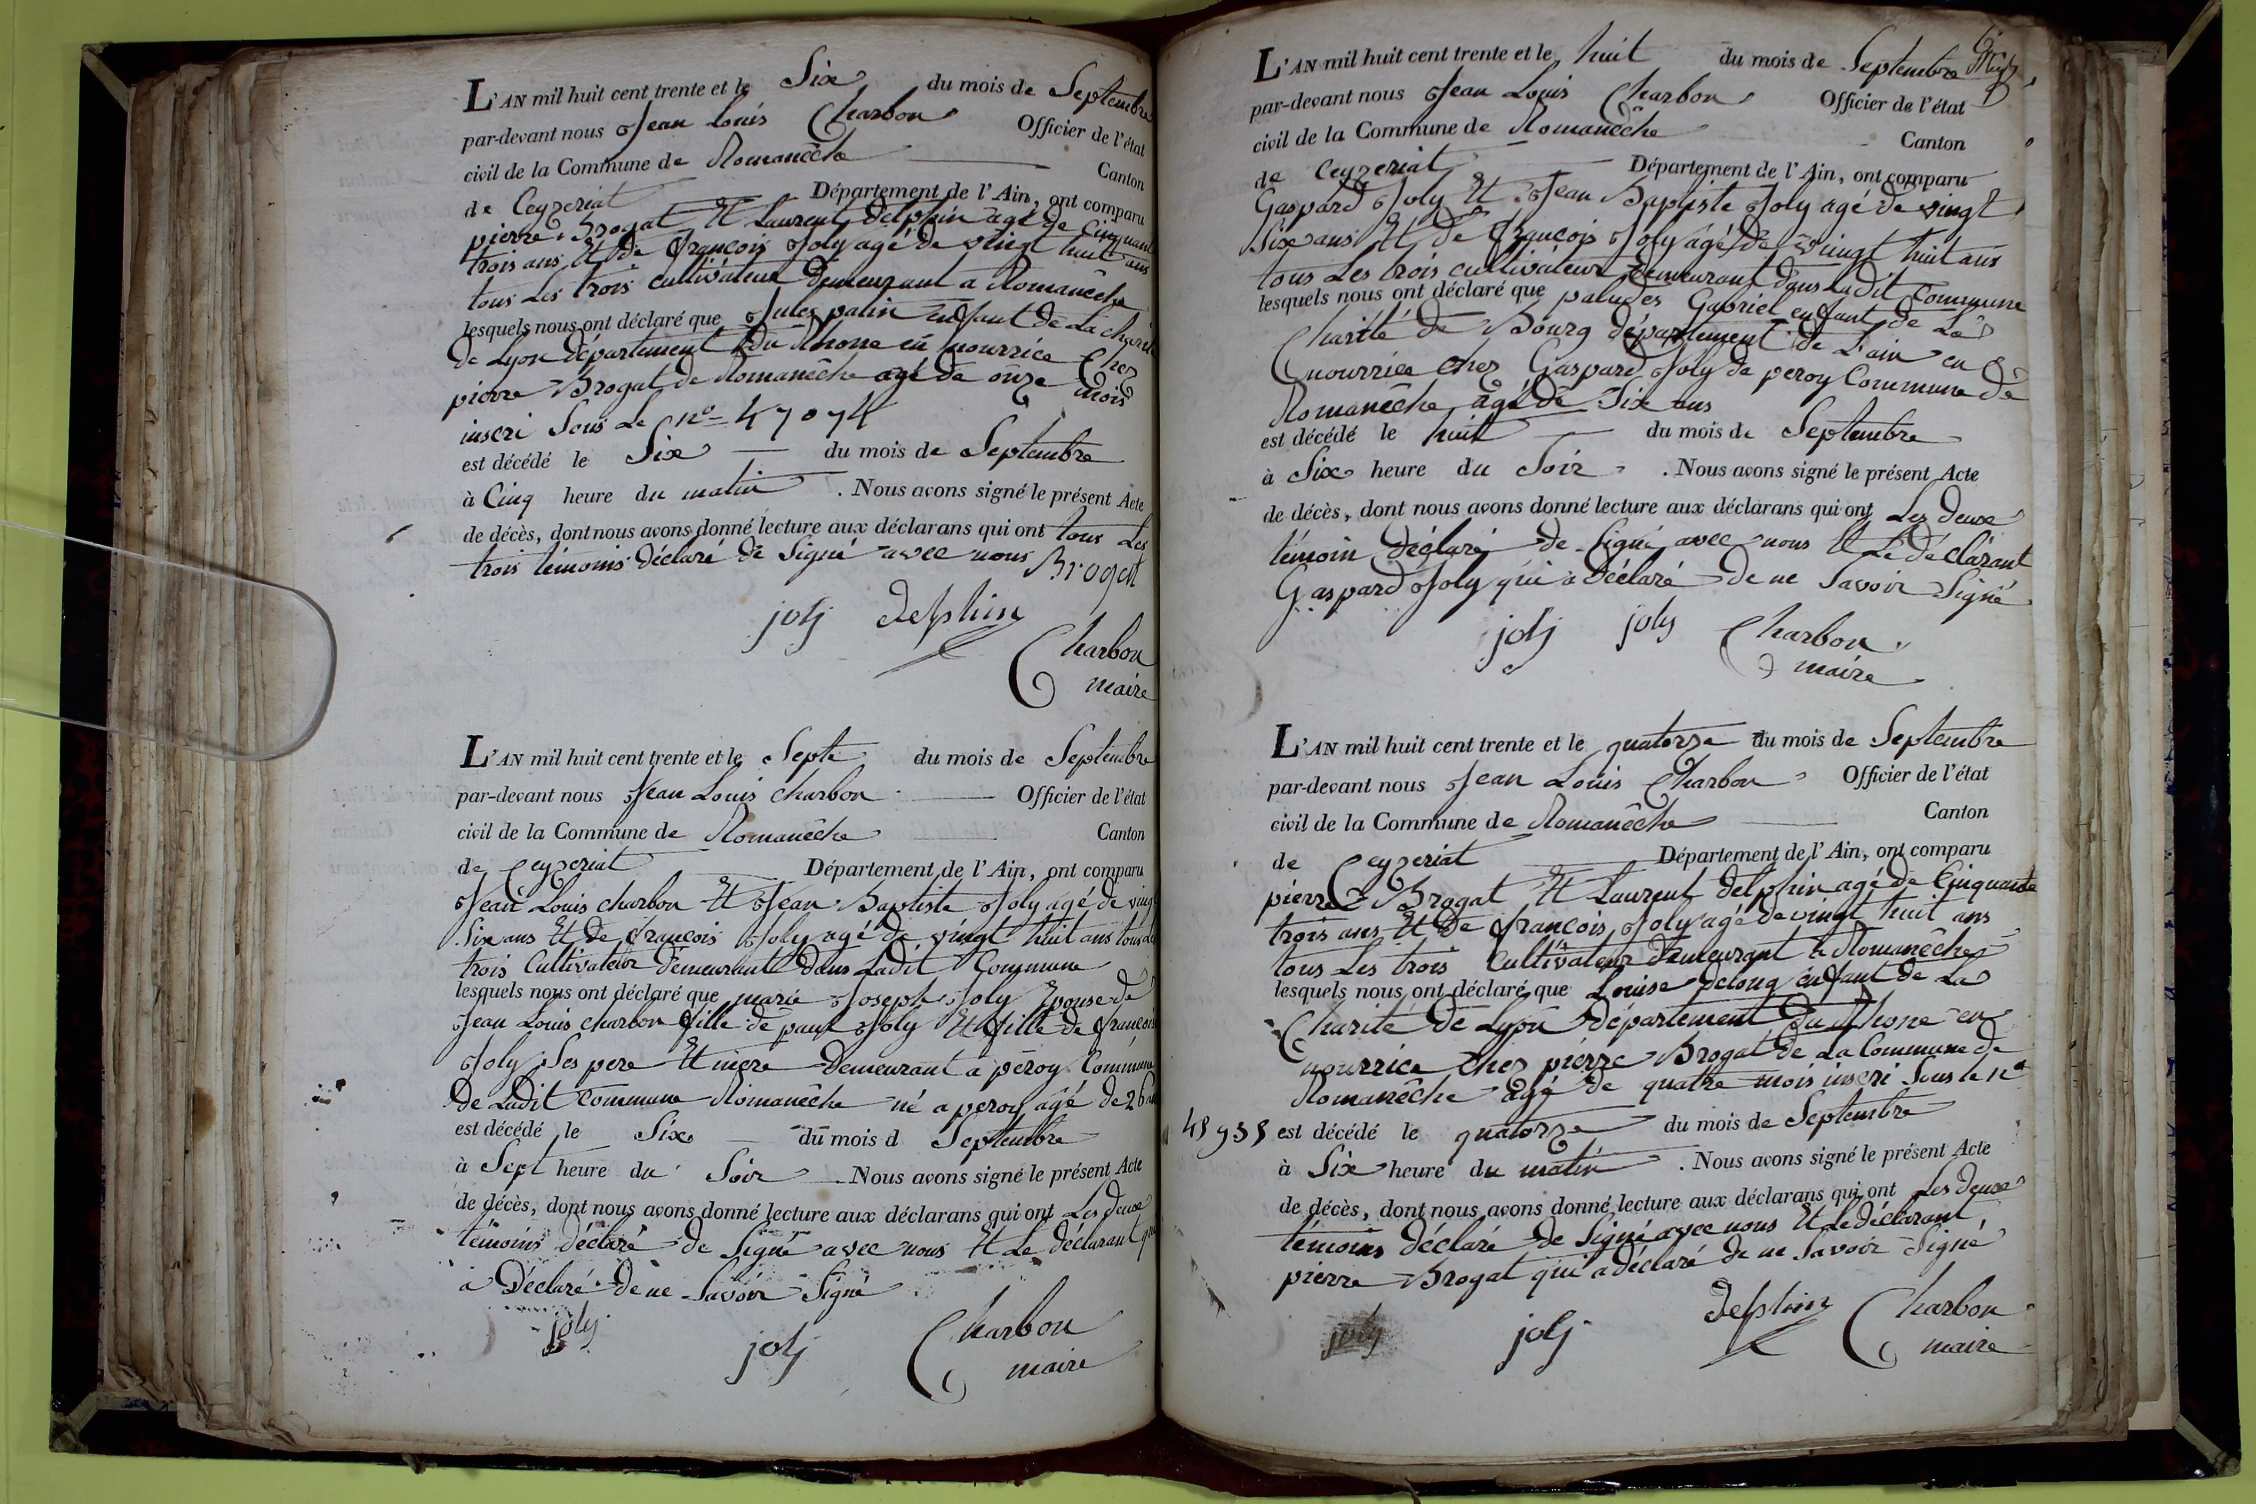 L'AN mil huit cent trente et le Six du mois de Septembre
par-devant nous Jean Louis Charbon Officier de l'état
civil de la Commune de Romanêche Canton
de Ceyzeriat Département de l'Ain, ont comparu
pierre Brogat Et Laurent delphin agé de Cinquante
trois ans Et de françois Joly agé de vingt huit ans
tous Les trois cultivateur demeurant a Romanêche
lesquels nous ont déclaré que Jules palin enfant de La charité
de Lyon département Du Rhone en nourrice Chez
pierre Brogat de Romanêche agé de onze mois
inscri Sous Le no 47074
est décédé le Six du mois de Septembre
à Cinq heure du matin . Nous avons signé le présent Acte
de décès, dont nous avons donné lecture aux déclarans qui ont tous Les
trois témoins déclaré de Signé avec nous Brogat
joly delphin
Charbon
maire
L'AN mil huit cent trente et le Septe du mois de Septembre
par-devant nous Jean Louis charbon Officier de l'état
civil de la Commune de Romanêche Canton
de Ceyzeriat Département de l'Ain, ont comparu
Jean Louis charbon Et Jean Baptiste Joly agé de vingt
Six ans Et de françois Joly agé de vingt huit ans tous
trois Cultivateur demeurant dans Ladit Commune
lesquels nous ont déclaré que marie Joseph Joly Epouse de
Jean Louis charbon fille de paul Joly Et fille de françois
Joly Ses pere Et mere Demeurant a peroy Commune
De Ladit Commune Romanêche né a peroy agé de 26 ans
est décédé le Six du mois d Septembre
à Sept heure du Soir Nous avons signé le présent Acte
de décès, dont nous avons donné lecture aux déclarans qui ont Les deux
témoins déclaré de Signé avec nous Et Le déclarant qui
a Déclaré de ne Savoir Signé
joly joly Charbon
maire
L'AN mil huit cent trente et le huit du mois de Septembre
par-devant nous Jean Louis Charbon Officier de l'état
civil de la Commune de Romanêche Canton
de Ceyzeriat Département de l'Ain, ont comparu
Gaspard Joly Et Jean Baptiste Joly agé de vingt
Six ans Et de françois Joly agé de vingt huit ans
tous Les trois cultivateur demeurant dans Ladit Commune
lesquels nous ont déclaré que paludes Gabriel enfant de La
Charité de Bourg département de L'ain en
nourrice chez Gaspard Joly de peroy Commune de
Romanêche agé de Six ans
est décédé le huit du mois de Septembre
à Six heure du Soir . Nous avons signé le présent Acte
de décès, dont nous avons donné lecture aux déclarans qui ont Les deux
témoin déclaré de Signé avec nous Et Le déclarant
Gaspard Joly qui a Déclaré de ne Savoir Signé
joly joly Charbon
maire
L'AN mil huit cent trente et le quatorze du mois de Septembre
par-devant nous Jean Louis Charbon Officier de l'état
civil de la Commune de Romanêche Canton
de Ceyzeriat Département de l'Ain, ont comparu
pierre Brogat Et Laurent delphin agé de Cinquante
trois ans Et De françois Joly agé de vingt huit ans
tous Les trois Cultivateur demeurant a Romanêche
lesquels nous ont déclaré que Louise Delong enfant de La
Charité de Lyon département Du Rhone en
nourrice chez pierre Brogat de La Commune de
Romanêche agé de quatre mois inscri Sous le no
est décédé le quatorze du mois de Septembre
à Six heure du matin . Nous avons signé le présent Acte
de décès, dont nous avons donné lecture aux déclarans qui ont Les deux
témoins déclaré de Signé avec nous Et Le déclarant
pierre Brogat qui a déclaré de ne Savoir Signé
joly joly delphin Charbon
maire